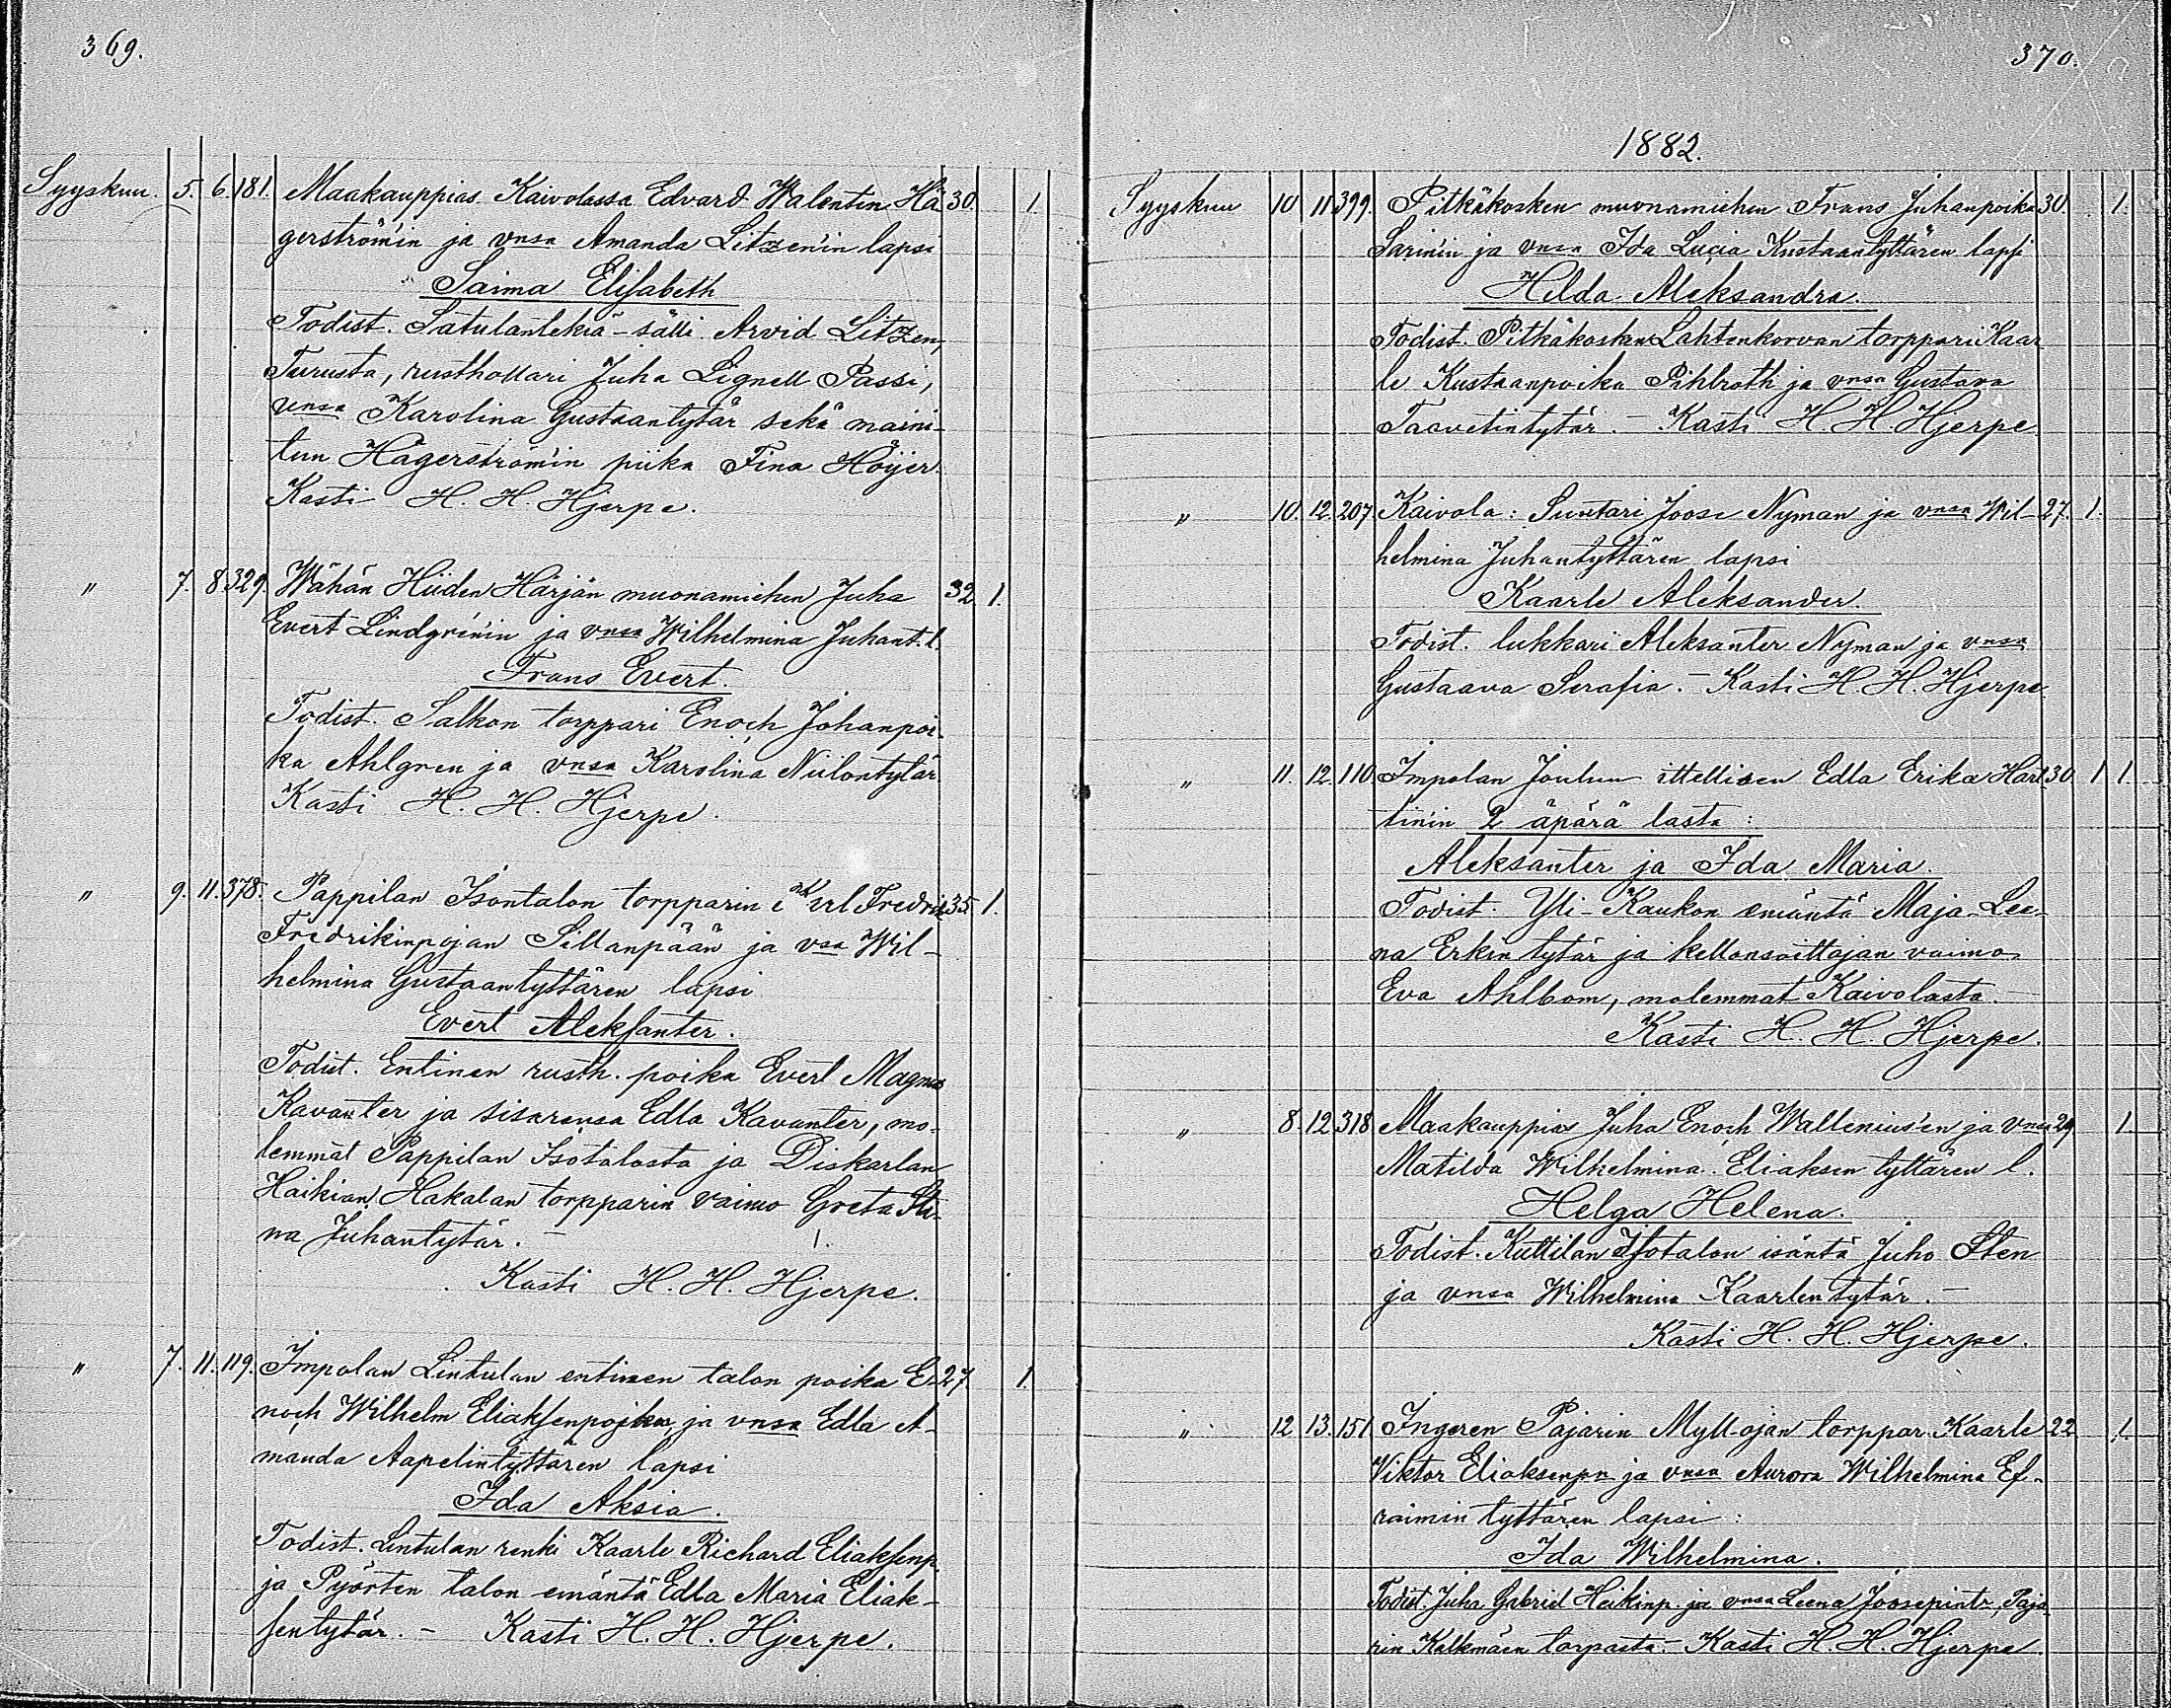 369.
Syyskuu. 5. 6. 181. Maakauppias Kaivolassa Edvard Walentin Hä 30. 1.
gerström'in ja vnsa Amanda Litzen'in lapsi
Saima Elisabeth
Todist. Satulantekiä-sälli Arvid Litzen,
Turusta, rusthollari Juha Lignell Passi,
vnsa Karolina Gustaantytär sekä maini-
tun Hägerström'in piika Fina Höijer.
Kasti H. H. Hjerpe.
" 7. 8. 329. Wähän Hiiden Härjän muonamiehen Juha 32. 1.
Evert Lindgrin'in ja vnsa Wilhelmina Juhant. l.
Frans Evert.
Todist. Salkon torppari Enoch Johanpoi-
ka Ahlgren ja vnsa Karolina Niilontytär
Kasti H. H. Hjerpe.
" 9. 11. 378. Pappilan Isontalon torpparin Karl Fredrik 35. 1.
Fredrikinpojan Sillanpään ja vsa Wil-
helmina Gustaantyttären lapsi
Evert Aleksanter.
Todist. Entinen rusth. poika Evert Magnus
Kavanter ja sisarensa Edla Kavanter, mo-
lemmat Pappilan Isotalosta ja Diskarlan
Haikian Hakalan torpparin vaimo Greta Sti-
na Juhantytär. –
Kasti H. H. Hjerpe.
" 7. 11. 119. Impolan Lintulan entinen talon poika E- 27. 1.
noch Wilhelm Eliaksenpojan ja vnsa Edla A-
manda Aapelintyttären lapsi
Ida Aksia.
Todist. Lintulan renki Kaarle Richard Eliaksenp.
ja Pyörten talon emäntä Edla Maria Eliak-
sentytär. – Kasti H. H. Hjerpe.
370.
1882.
Syyskuu 10 11 399. Pitkäkosken muonamiehen Frans Juhanpoika 30. 1.
Sarin'in ja vnsa Ida Lucia Kustaantyttären lapsi
Hilda Aleksandra.
Todist. Pitkäkosken Lahtenkorvan torppari Kaar
le Kustaanpoika Pihlroth ja vnsa Gustava
Taavetintytär. – Kasti H. H. Hjerpe
" 10. 12. 207. Kaivola: Suntari Joose Nyman ja vnsa Wil- 27. 1.
helmina Juhantyttären lapsi
Kaarle Aleksander.
Todist. lukkari Aleksanter Nyman ja vnsa
Gustaava Serafia. – Kasti H. H. Hjerpe
" 11. 12. 110 Impolan Joulun ittellisen Edla Erika Hart- 30 1 1.
tinin 2 äpärä lasta:
Aleksanter ja Ida Maria.
Todist. Yli-Kaukon emäntä Maja-Lee-
na Erkintytär ja kellonsoittajan vaimo
Eva Ahlbom, molemmat Kaivolasta. –
Kasti H. H. Hjerpe.
" 8. 12. 318 Maakauppias Juha Enoch Wallenius'en ja vnsa 29. 1.
Matilda Wilhelmina Eliaksen tyttären l.
Helga Helena.
Todist. Kuttilan Isotalon isäntä Juho Sten
ja vnsa Wilhelmina Kaarlentytär. –
Kasti H. H. Hjerpe.
" 12 13. 151. Ingeren Pajarin Myll-ojan torppar. Kaarle 22 1.
Viktor Eliaksenpn ja vnsa Aurora Wilhelmina Ef-
raimin tyttären lapsi:
Ida Wilhelmina.
Todist. Juha Gabriel Heikinp. ja vnsa Leena Joosepintr, Paja-
rin Kalkmäen torpasta. – Kasti H. H. Hjerpe.